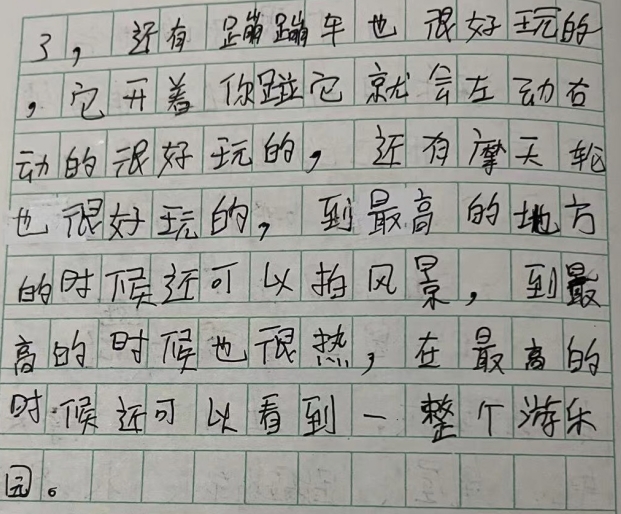 了，还有蹦蹦车也很好玩的
，它开着你碰它就会左动右
动的很好玩的，还有摩天轮
也很好玩的，到最高的地方
的时候还可以拍风景，到最
高的时候也很热，在最高的
时候还可以看到一整个游乐
园。